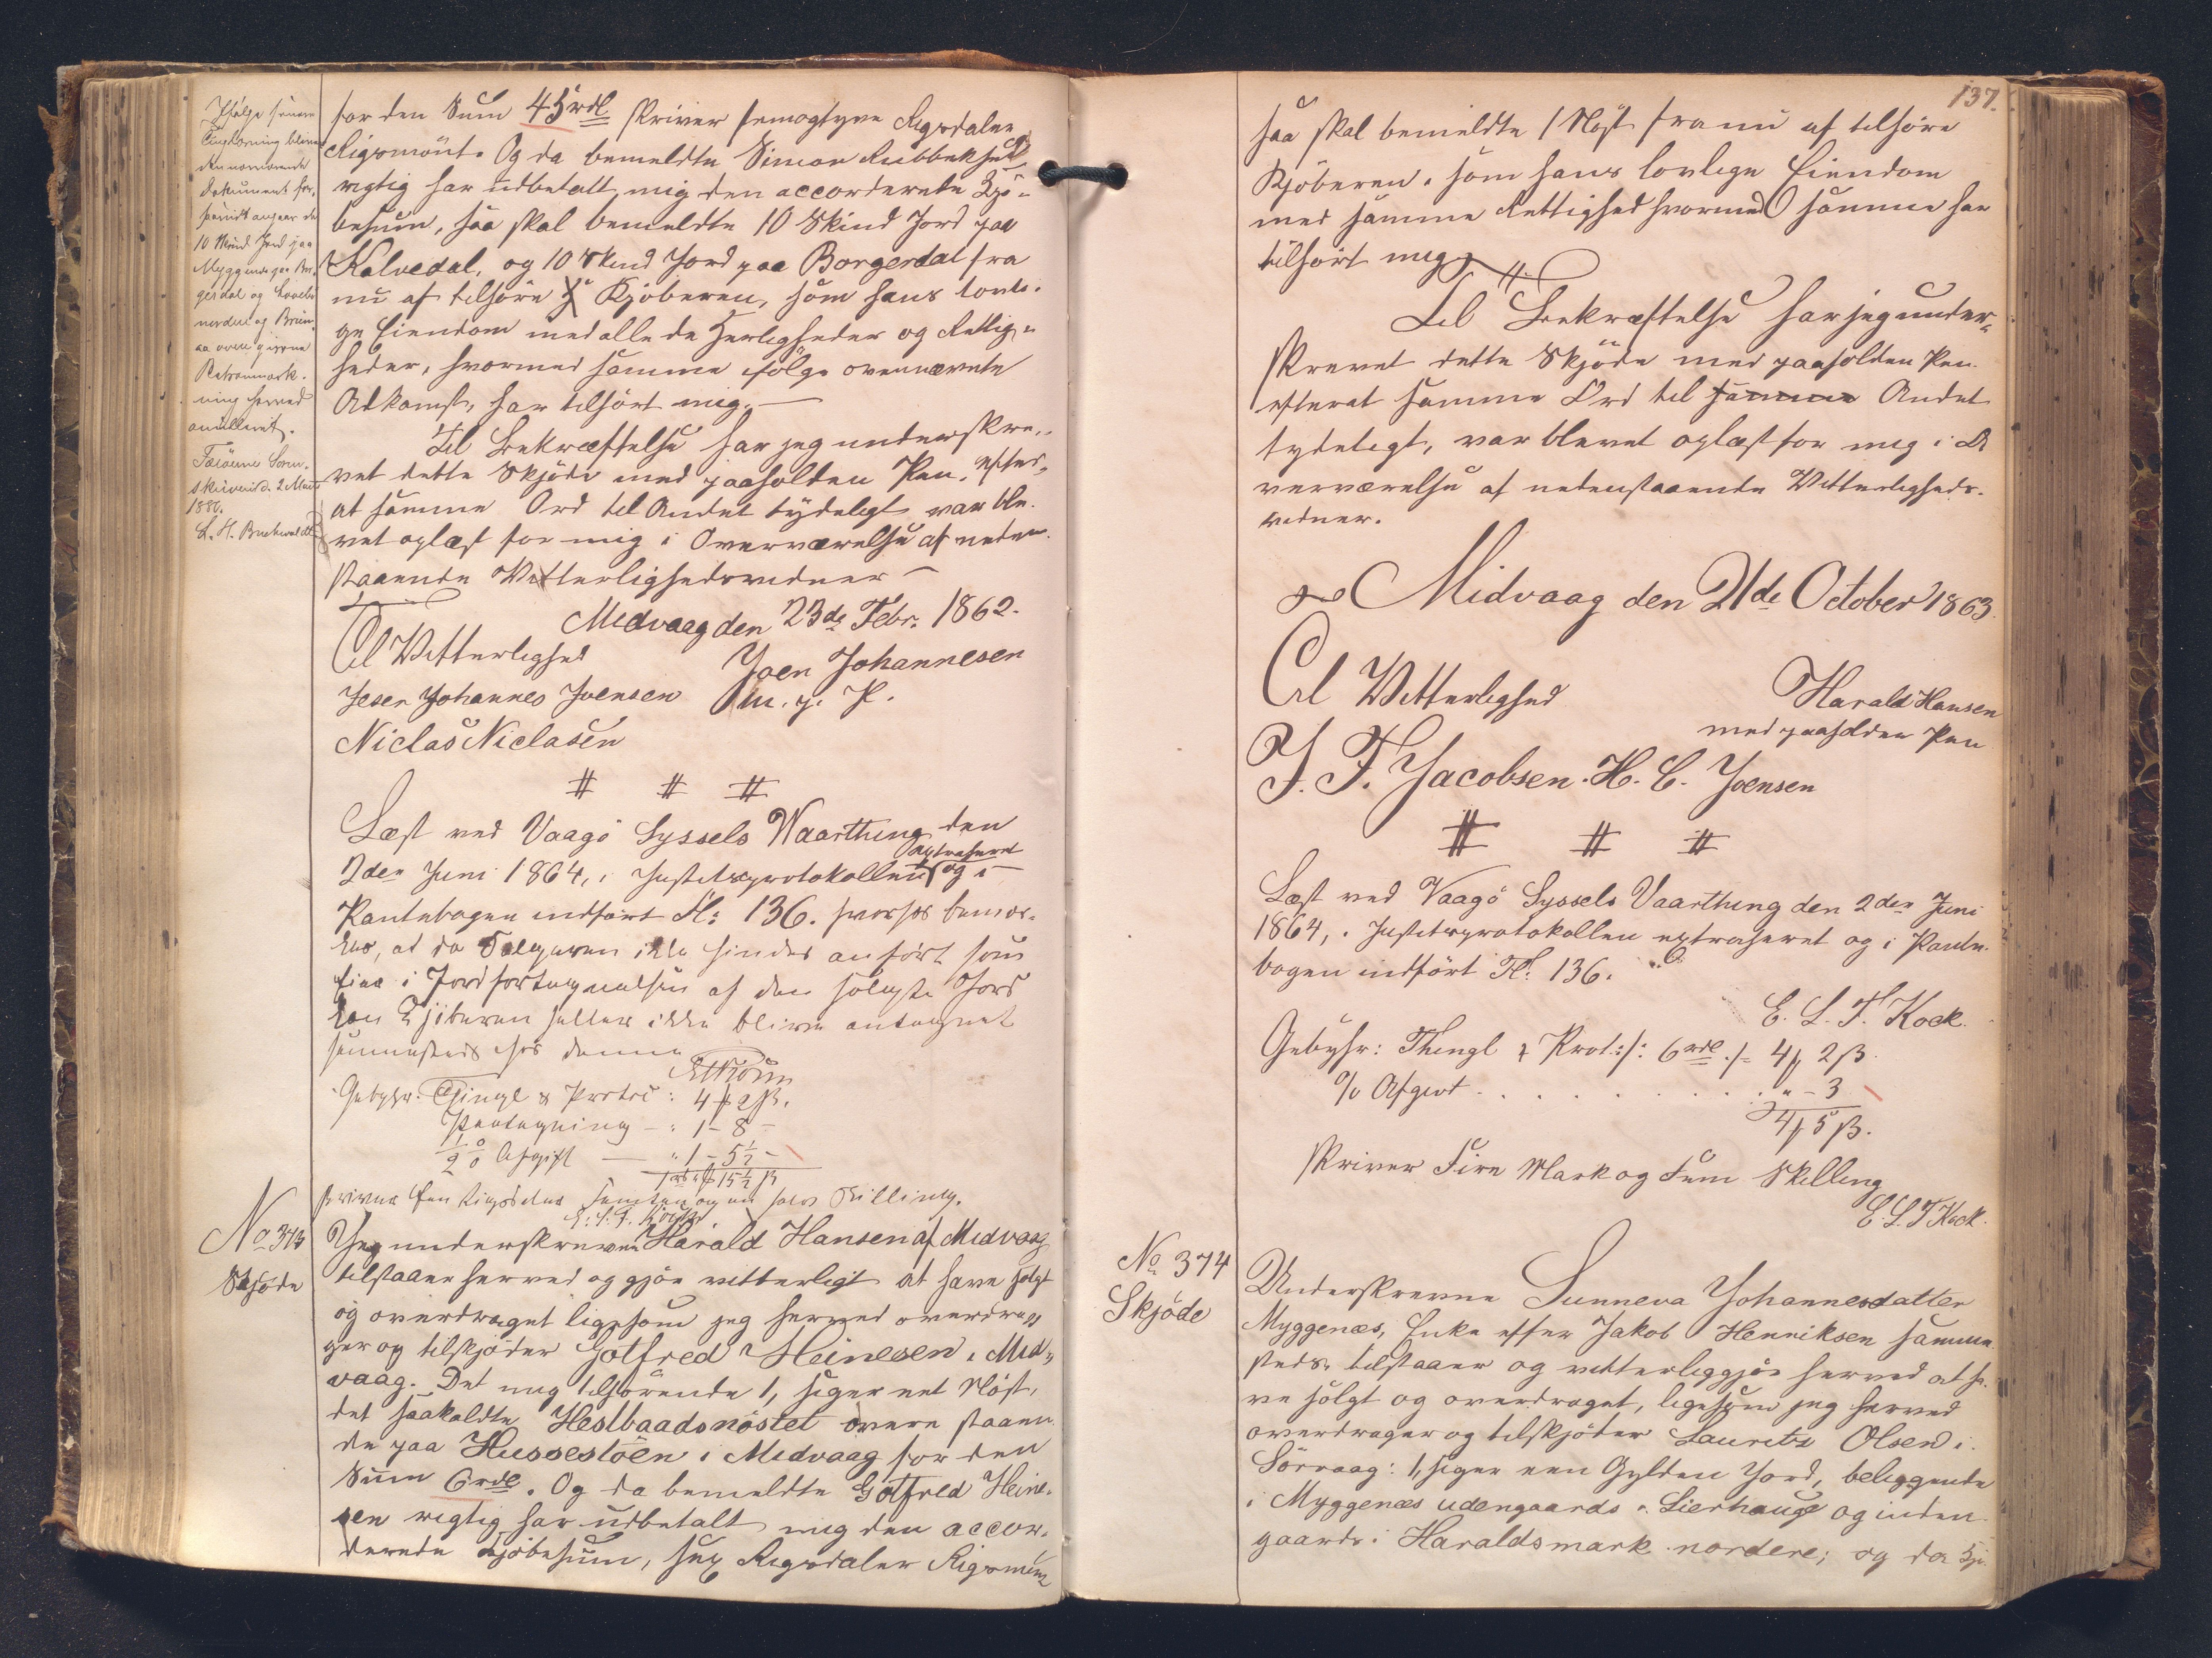 Ifølge senere
Tinglysning bliver
nærværende
Dokument for-
saavidt angaar de
10 Skind Jord paa
Myggenæs paa Bor-
gerdal og
nordre og
aa oven givne
Retsanmærk-
ning herved
annulleret.
Færöerne Soren-
skriveri d. 2 Marts
188
L. H. Buchwaldt
for den Sum 45 rdl skriver femogfyre Rigsdaler
Rigsmönt. Og da bemeldte Simon
rigtig har udbetalt mig den accorderede Kjö-
besum, saa skal bemeldte 10 Skind Jord paa
Kalvedal, og 10 Skind Jord paa Borgerdal fra
nu af tilhöre Kjöberen, som hans lovli-
ge Eiendom med alle de Herligheder og Rettig-
heder, hvormed samme ifölge ovennævnte
Adkomst, har tilhört mig. —
Til Bekræftelse har jeg underskre-
vet dette Skjöde med paaholden Pen, efter-
at samme Ord til Andet tydeligt var ble-
vet oplæst for mig i Overværelse af neden-
staaende Vitterlighedsvidner —
Midvaag den 23de Febr. 1862.
Til Vitterlighed Joen Johannesen
Jesen Johannes Joensen m. p. P.
Niclas Niclasen
# # #
Læst ved Vaagö Syssels Waarthing den
2den Juni 1864, i Justitsprotokollen extraheret og i
Pantebogen indfört Fl: 136. hvorhos bemær-
kes, at da Sælgeren ikke findes anfört som
Eier i Jordfortegnelsen af den solgte Jord
kan Kjöberen heller ikke blive antegnet
sammesteds for denne
Gebyhr: Thingl & Protoc: 4 ₰ 2 ß.
Paategning — " 1 – 8 –
½ % Afgift — " 1 – 5½ –
1 rd " ₰ 15½ ß
skriver Een Rigsdaler Femten og en halv Skilling.
E. L. T. Kock
No 373
Skjöde
Jeg underskrevne Harald Hansen af Midvaag
tilstaaer herved og gjör vitterligt at have solgt
og overdraget ligesom jeg herved overdra-
ger og tilskjöder Gotfred Heinesen i Mid-
vaag. Det mig tilhörende 1, siger eet Nöst,
det saakaldte Hestbaadsnöstet övere staaen-
de paa Hussestöen i Midvaag for den
Sum 6 rdl. Og da bemeldte Gotfred Heine-
sen rigtig har udbetalt mig den accor-
derede Kjöbesum, sex Rigsdaler Rigsmönt
137.
saa skal bemeldte 1 Nöst fra nu af tilhöre
Kjöberen, som hans lovlige Eiendom
med samme Rettighed hvormed samme har
tilhört mig
#
Til Bekræftelse har jeg under-
skrevet dette Skjöde med paaholden Pen
efterat samme Ord til samme Andet
tydeligt, var blevet oplæst for mig i O
verværelse af nedenstaaende Vitterligheds-
vidner.
Midvaag den 21de October 1863.
Til Vitterlighed Harald Hansen
med paaholden Pen
J. F. Jacobsen. H. C. Joensen
# # #
Læst ved Vaagö Syssels Vaarthing den 2den Juni
1864, i Justitsprotokollen extraheret og i Pante-
bogen indfört Fl: 136.
E. L. T. Kock.
Gebyhr: Thingl & Prot: /: 6 rdl ./= 4 ₰ 2 ß.
% Afgivt . . . . . . . . . " – 3
4 ₰ 5 ß.
skriver Fire Mark og Fem Skilling
E. L. T. Kock.
No 374
Skjöde
Underskrevne Sunneva Johannesdatter
Myggenæs, Enke efter Jakob Henriksen samme-
steds tilstaaer og vitterliggjör herved at ha-
ve solgt og overdraget, ligesom jeg herved
overdrager og tilskjöder Laurits Olsen i
Sörvaag: 1, siger een Gylden Jord, beliggende
i Myggenæs udengaards i Lierhauge og inden-
gaards i Haraldsmark nordere; og da Kjö-